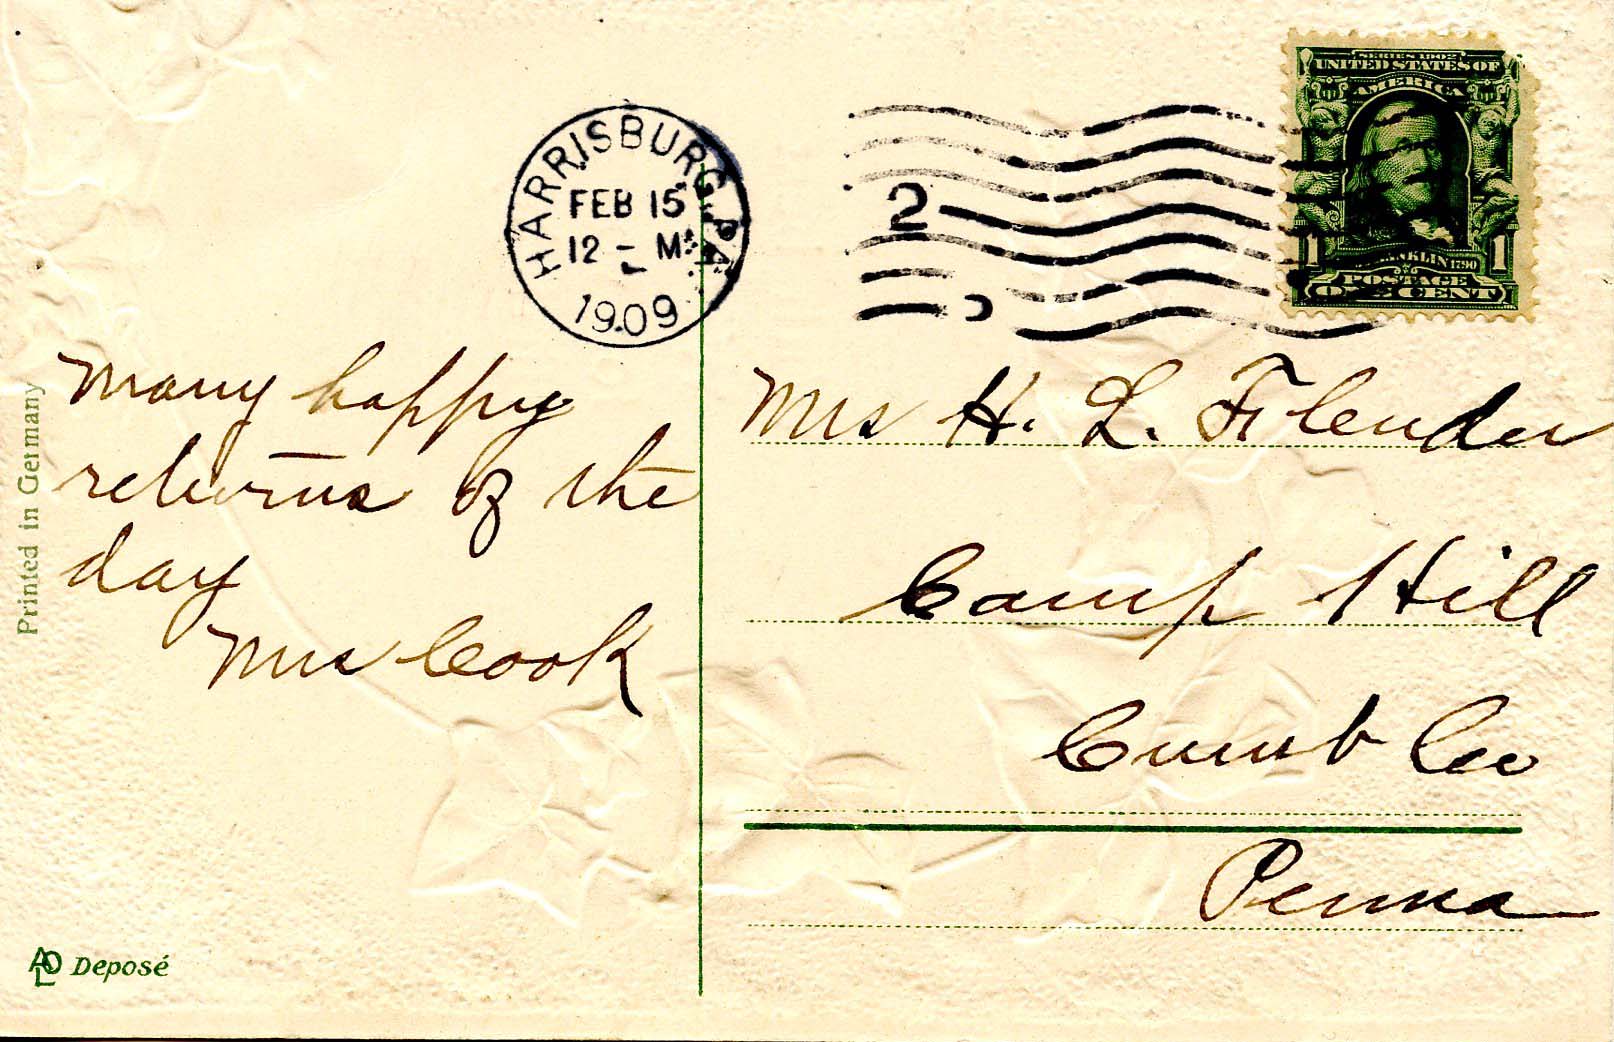 SERIES 1902
UNITED STATES OF
AMERICA
FRANKLIN 1790
1 1
POSTAGE
ONE CENT
HARRISBURG, PA.
FEB 15
12 - M
1909
2
Many happy
returns of the
day
Mrs Cook
Mrs H. L. Flender
Camp Hill
Cumb Co
Penna
Printed in Germany
Deposé